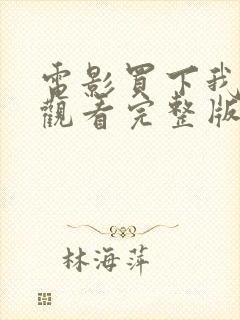 電影買下我
觀看完整版
林海萍